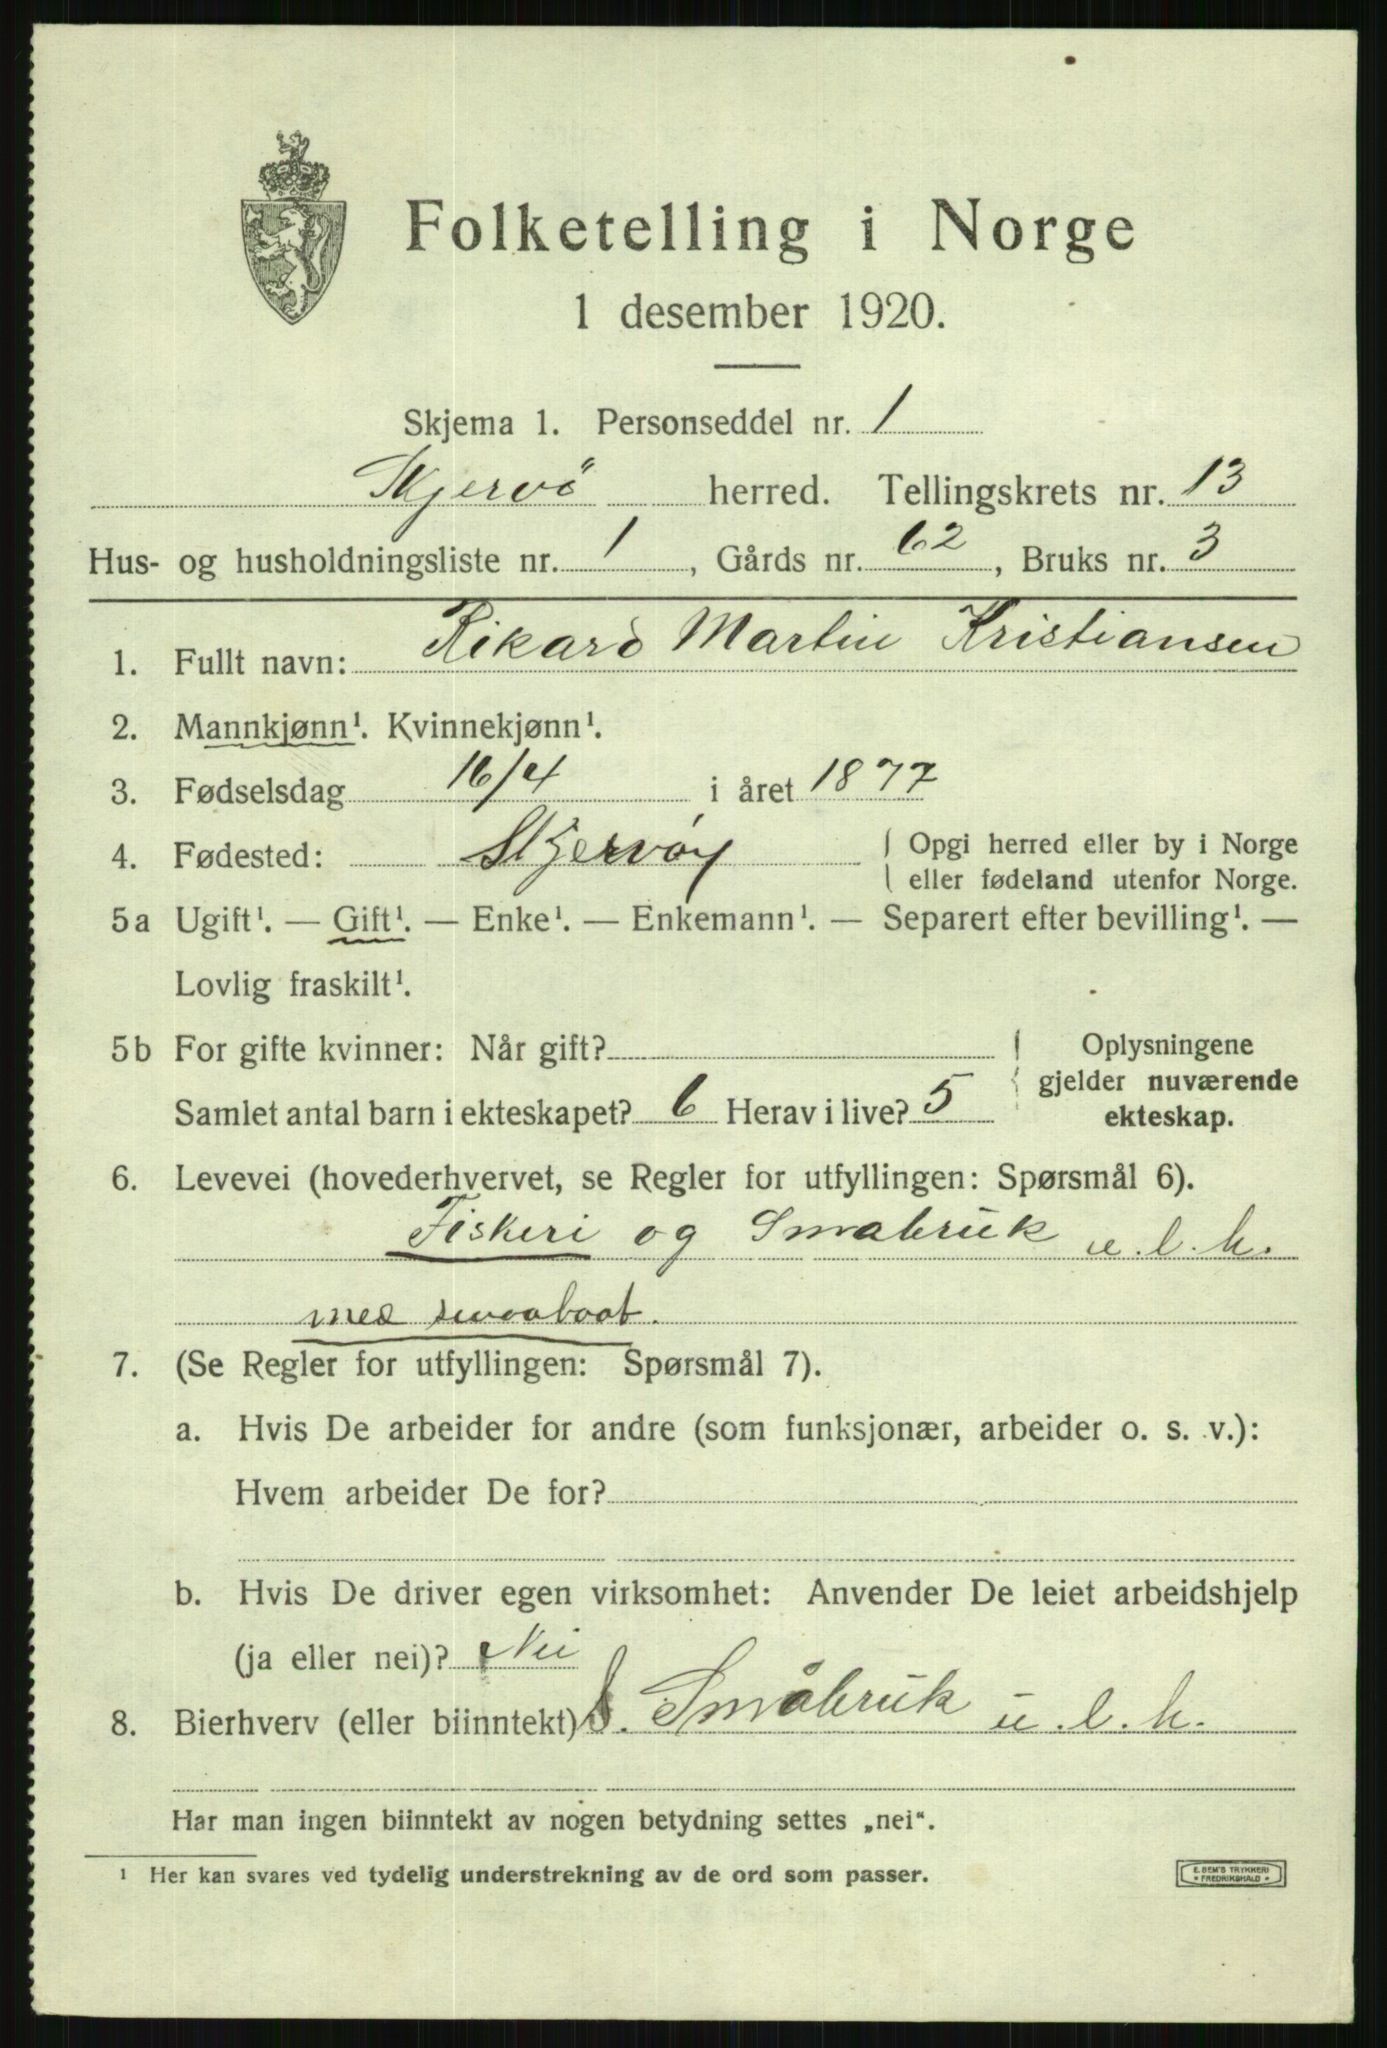 Folketelling i Norge
1 desember 1920.
Skjema 1. Personseddel nr. 1
Skjervö herred. Tellingskrets nr. 13
Hus- og husholdningsliste nr. 1, Gårds nr. 62, Bruks nr. 3
1. Fullt navn: Rikard Martin Kristiansen
2. Mannkjønn¹. Kvinnekjønn¹.
3. Fødselsdag 16/4 i året 1877
4. Fødested: Skjervøy { Opgi herred eller by i Norge
eller fødeland utenfor Norge.
5a Ugift¹. — Gift¹. — Enke¹. — Enkemann¹. — Separert efter bevilling¹. —
Lovlig fraskilt¹.
5b For gifte kvinner: Når gift?
Samlet antal barn i ekteskapet? 6 Herav i live? 5
Oplysningene
gjelder nuværende
ekteskap.
6. Levevei (hovederhvervet, se Regler for utfyllingen: Spørsmål 6).
Fiskeri og Smabruk u. l. h.
med smaabaat.
7. (Se Regler for utfyllingen: Spørsmål 7).
a. Hvis De arbeider for andre (som funksjonær, arbeider o. s. v.):
Hvem arbeider De for?
b. Hvis De driver egen virksomhet: Anvender De leiet arbeidshjelp
(ja eller nei)? Nei
8. Bierhverv (eller biinntekt) S. Småbruk u. l. h.
Har man ingen biinntekt av nogen betydning settes „nei“.
¹ Her kan svares ved tydelig understrekning av de ord som passer.
E. SEM'S TRYKKERI
* FREDRIKSHALD *